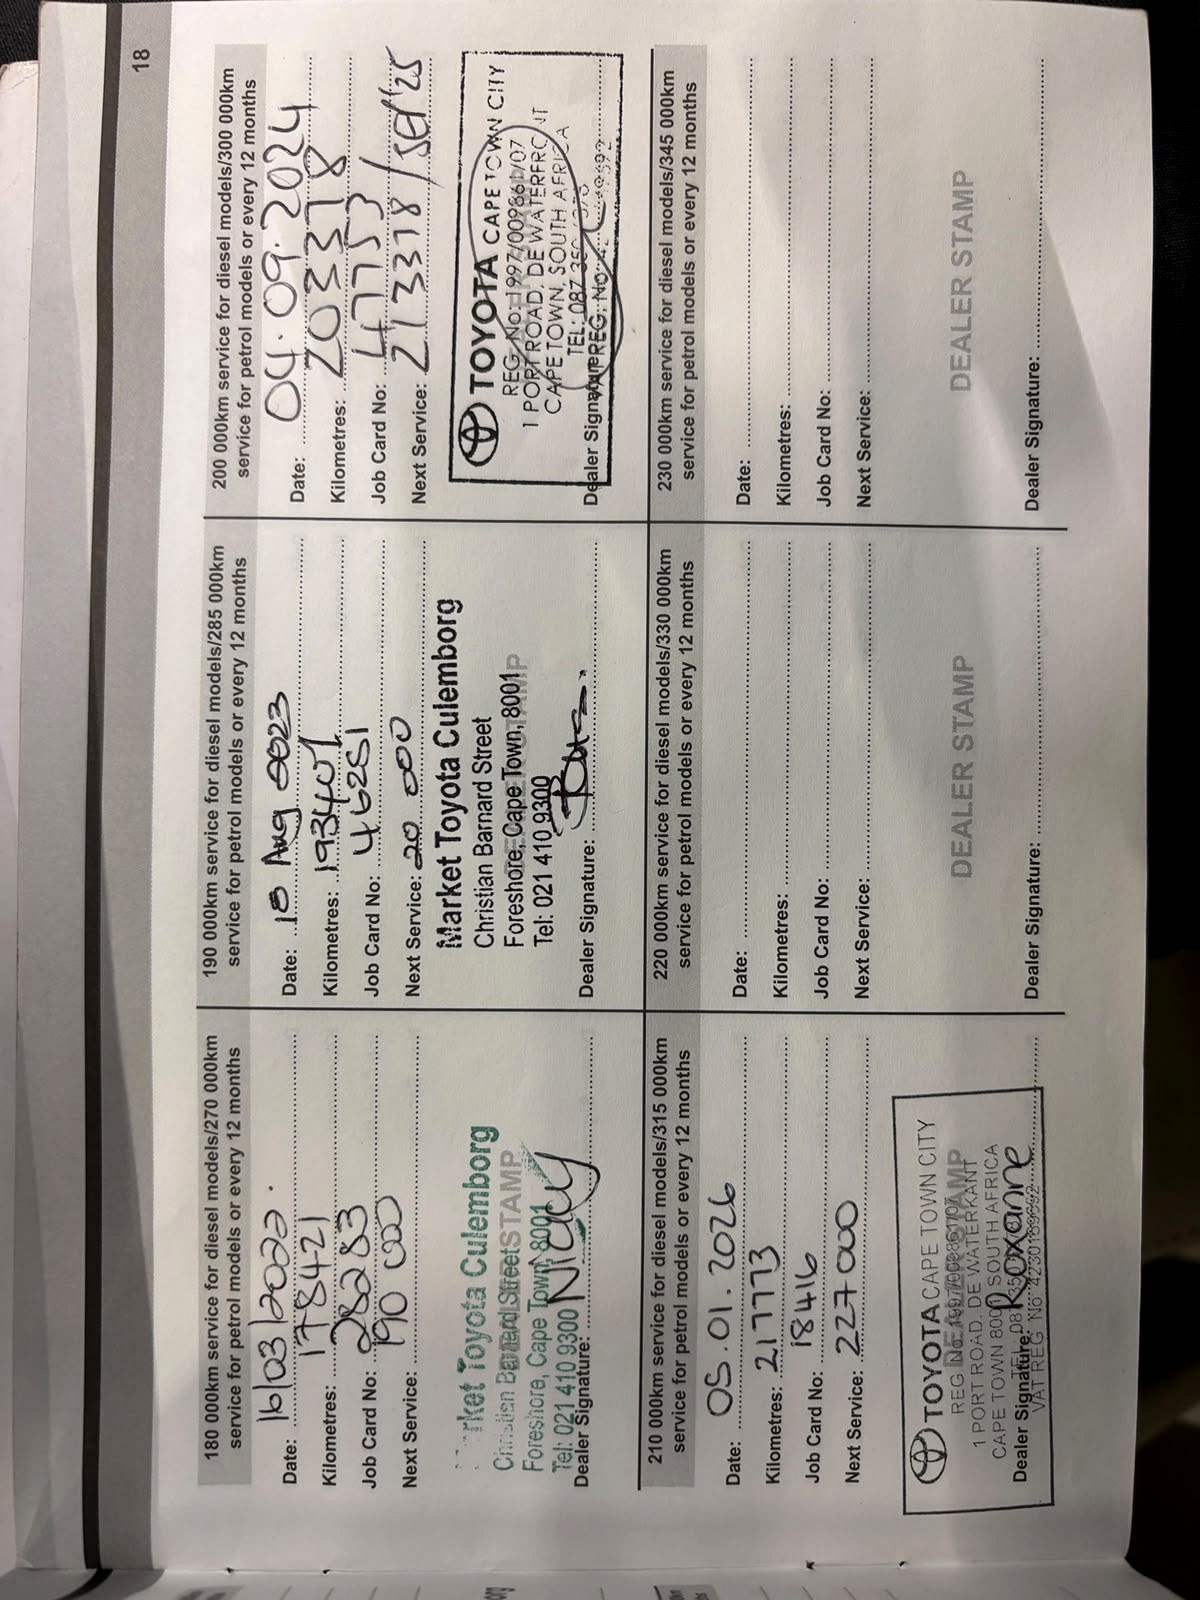 18
180 000km service for diesel models/270 000km
service for petrol models or every 12 months
Date: 16/03/2022.
Kilometres: 178421
Job Card No: 28283
Next Service: 190 000
Market Toyota Culemborg
Christian Barnard Street
DEALER STAMP
Foreshore, Cape Town 8001
Tel: 021 410 9300
Dealer Signature:
190 000km service for diesel models/285 000km
service for petrol models or every 12 months
Date: 18 Aug 2023
Kilometres: 193401
Job Card No: 46251
Next Service: 20 000
Market Toyota Culemborg
Christian Barnard Street
Foreshore, Cape Town, 8001
DEALER STAMP
Tel: 021 410 9300
Dealer Signature:
200 000km service for diesel models/300 000km
service for petrol models or every 12 months
Date: 04.09.2024
Kilometres: 203318
Job Card No: 47753
Next Service: 213318 / Sep'25
TOYOTA CAPE TOWN CITY
REG. No: 1997/009861/07
1 PORT ROAD, DE WATERFRONT
CAPE TOWN, SOUTH AFRICA
TEL: 087 35
VAT REG. No: 42
Dealer Signature:
210 000km service for diesel models/315 000km
service for petrol models or every 12 months
Date: 05.01.2026
Kilometres: 217773
Job Card No: 18416
Next Service: 227 000
TOYOTA CAPE TOWN CITY
DEALER STAMP
REG No: 1997/009861/07
1 PORT ROAD, DE WATERKANT
CAPE TOWN 8001 SOUTH AFRICA
TEL: 087 35
Dealer Signature: Roxanne
VAT REG. No: 4230169692
220 000km service for diesel models/330 000km
service for petrol models or every 12 months
Date:
Kilometres:
Job Card No:
Next Service:
DEALER STAMP
Dealer Signature:
230 000km service for diesel models/345 000km
service for petrol models or every 12 months
Date:
Kilometres:
Job Card No:
Next Service:
DEALER STAMP
Dealer Signature: